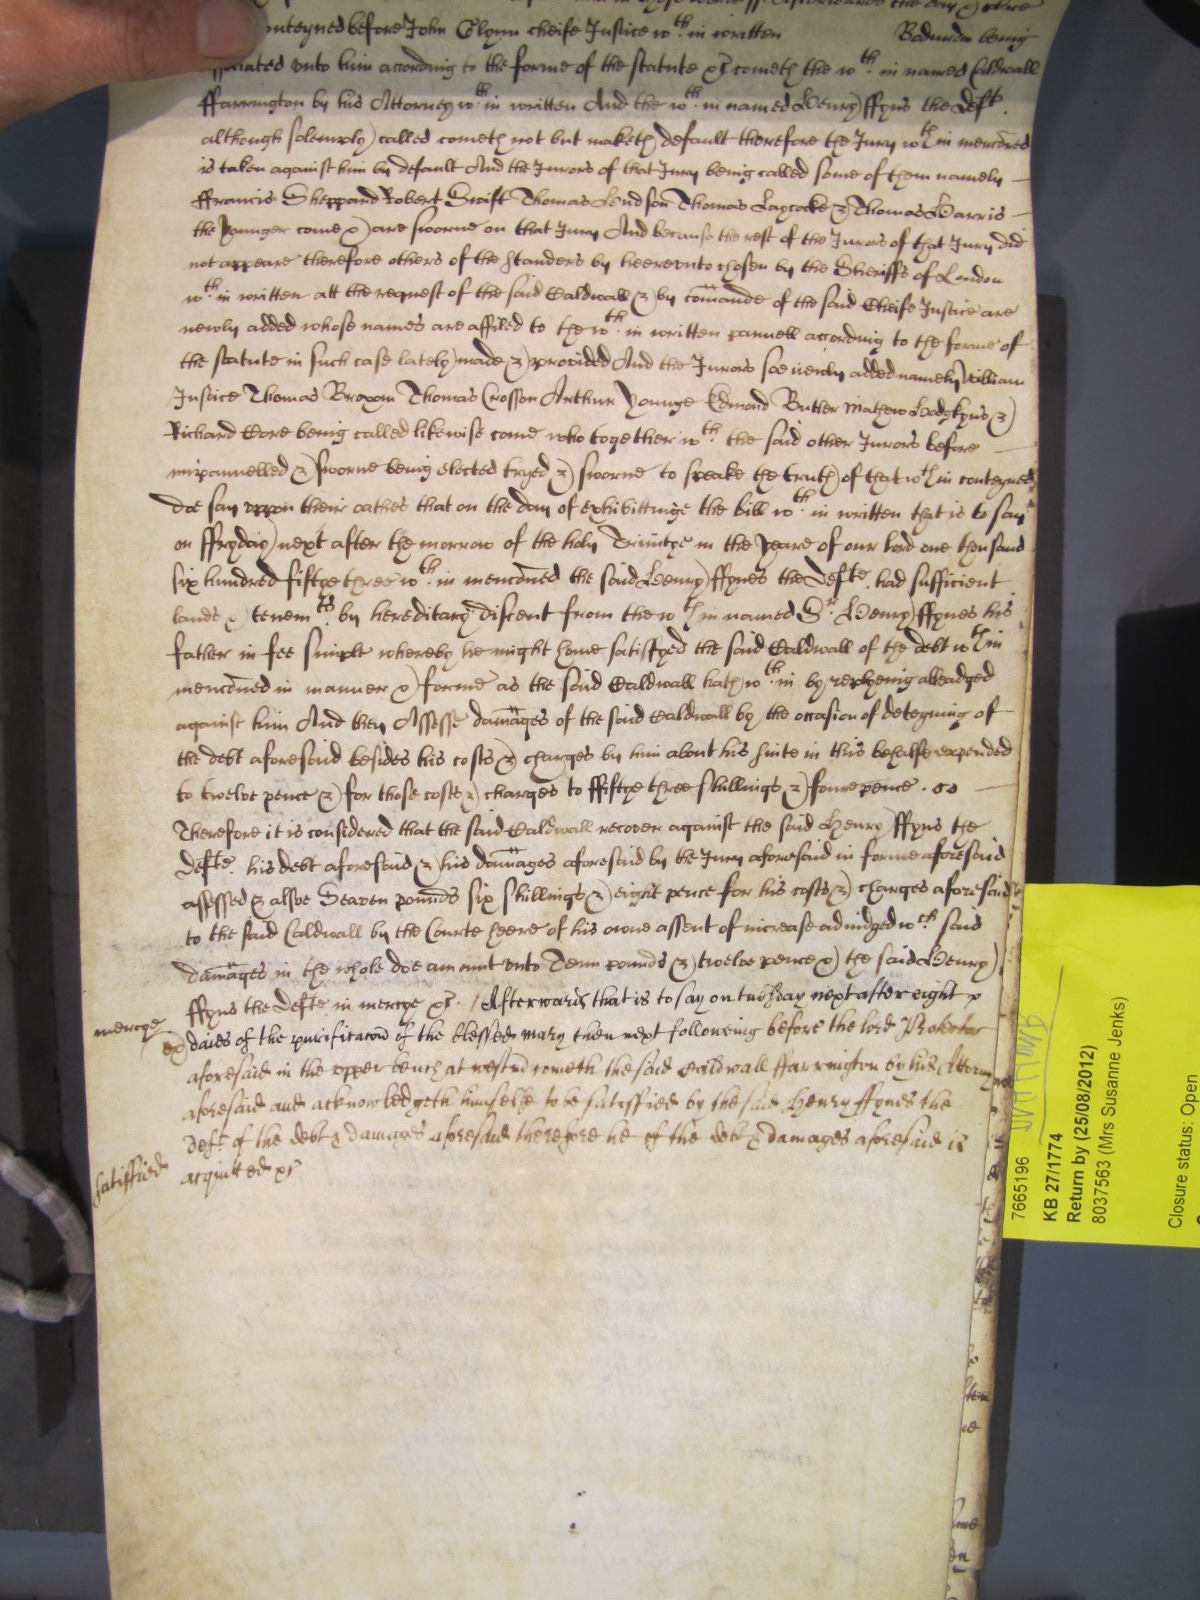 the day & place
conteyned before John Glynn cheife Justice wth.in written Bodurda being
associated vnto him according to the forme of the statute &c cometh the wth.in named Caldwall
ffarrington by his Attorney wth.in written And the wth.in named Henry ffyns the Deft.
although solemply called cometh not but maketh default therefore the Jury wth.in menc̃oned
is taken against him by default And the Jurors of that Jury being called some of them namely
ffrancis Sheppard Robert Swift Thomas Hudson Thomas Laycocke & Thomas Harris
the younger come & are sworne on that Jury And because the rest of the Jurors of that Jury did
not appeare therefore others of the standers by heerevnto chosen by the Sheriffs of London
wth.in written att the request of the said Caldwall & by com̃ande of the said Cheife Justice are
newly added whose names are affiled to the wth.in written pannell according to the forme of
the statute in such case lately made & provided And the Jurors soe newly added namely William
Justice Thomas Broxon Thomas Crosson Arthur Younge Edmond Butler Mathew Hodgkyns &
Richard Core being called likewise come who together wth. the said other Jurors before
impannelled & sworne being elected tryed & sworne to speake the truth of that wth.in conteyned
doe say vppon their oathes that on the day of exhibittinge the bill wth.in written that is to say
on ffryday next after the morrow of the holy Trinitye in the yeare of our lord one thousand
six hundred fiftye three wth.in menc̃oned the said Henry ffynes the Defte. had sufficient
lands & tenemts. by hereditary discent from the wth.in named Sr. Henry ffynes his
father in fee simple whereby he might haue satisfyed the said Caldwall of the debt wth.in
menc̃oned in manner & forme as the said Caldwall hath wth.in by replyeing alleadged
against him And then Assesse dam̃ages of the said Caldwall by the occasion of deteyning of
the debt aforesaid besides his costs & charges by him about his suite in this behalfe expended
to twelve pence & for those costs & charges to ffiftye three shillings & foure pence.
Therefore it is considered that the said Caldwall recover against the said Henry ffyns the
Defte. his debt aforesaid & his dam̃ages aforesaid by the Jury aforesaid in forme aforesaid
assessed & alsoe Seaven pounds six shillings & eight pence for his costs & charges aforesaid
to the said Caldwall by the Courte heere of his owne assent of increase adiudged wch. said
dam̃ages in the whole doe amount vnto Tenn pounds & twelve pence & the said Henry
ffyns the Defte in mercye &c. / Afterwards that is to say on tuesday next after eight
mercye
daies of the purificac̃on of the blessed mary then next following before the lord Protector
aforesaid in the vpper bench at westm̃ cometh the said Caldwall ffarrington by his Attorny
aforesaid and acknowledgeth himselfe to be satisfied by the said Henry ffynes the
Deft. of the debt & damages aforesaid therefore he of the debt & damages aforesaid is
acquitted &c
satisfied
7665196
KB 27/1774
Return by (25/08/2012)
8037563 (Mrs Susanne Jenks)
Closure status: Open